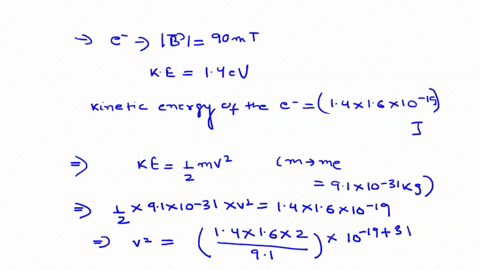 → e⁻ → |B⃗| = 90 mT
K.E = 1.4 eV
Kinetic energy of the e⁻ = (1.4×1.6×10⁻¹⁹)
J
⇒ KE = 1/2 mv² (m → me
= 9.1×10⁻³¹ Kg)
⇒ 1/2 × 9.1×10-31 × v² = 1.4×1.6×10-19
⇒ v² = (1.4×1.6×2 / 9.1) × 10⁻¹⁹⁺³¹